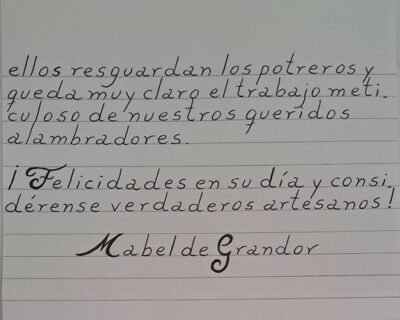 ellos resguardan los potreros y
queda muy claro el trabajo meti.
culoso de nuestros queridos
alambradores.
¡Felicidades en su día y consi.
dérense verdaderos artesanos!
Mabel de Grandor